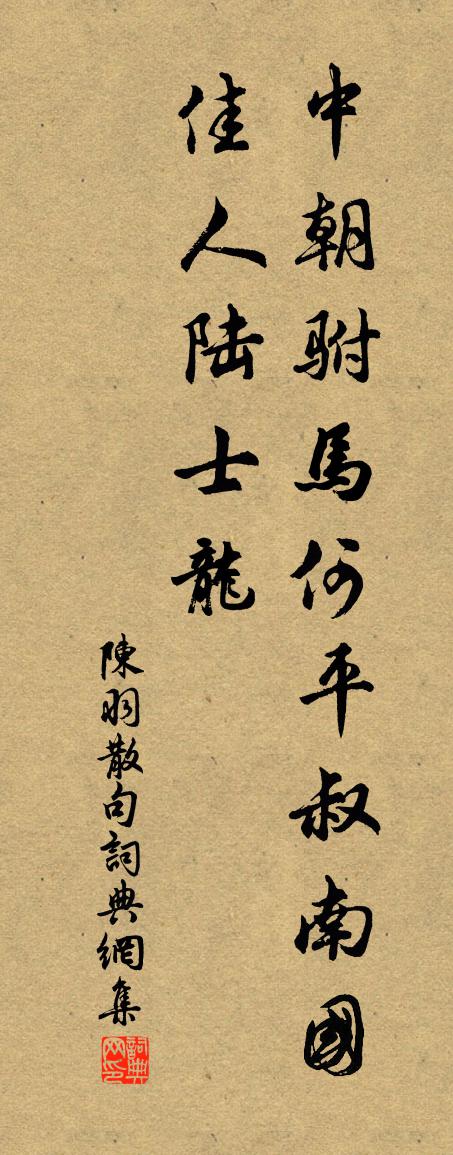 中朝駙馬何平叔南國
佳人陸士龍
陳羽散句詞典網集
詞典网印